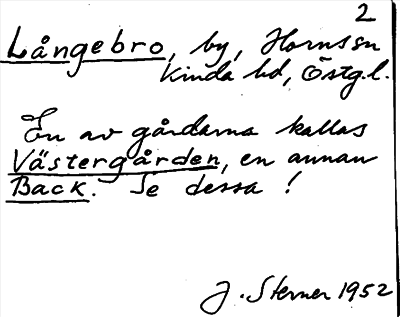 2
Långebro, by, Horns sn
Kinda hd, Östg.l.
En av gårdarna kallas
Västergården, en annan
Back. Se dessa!
J. Sterner 1952